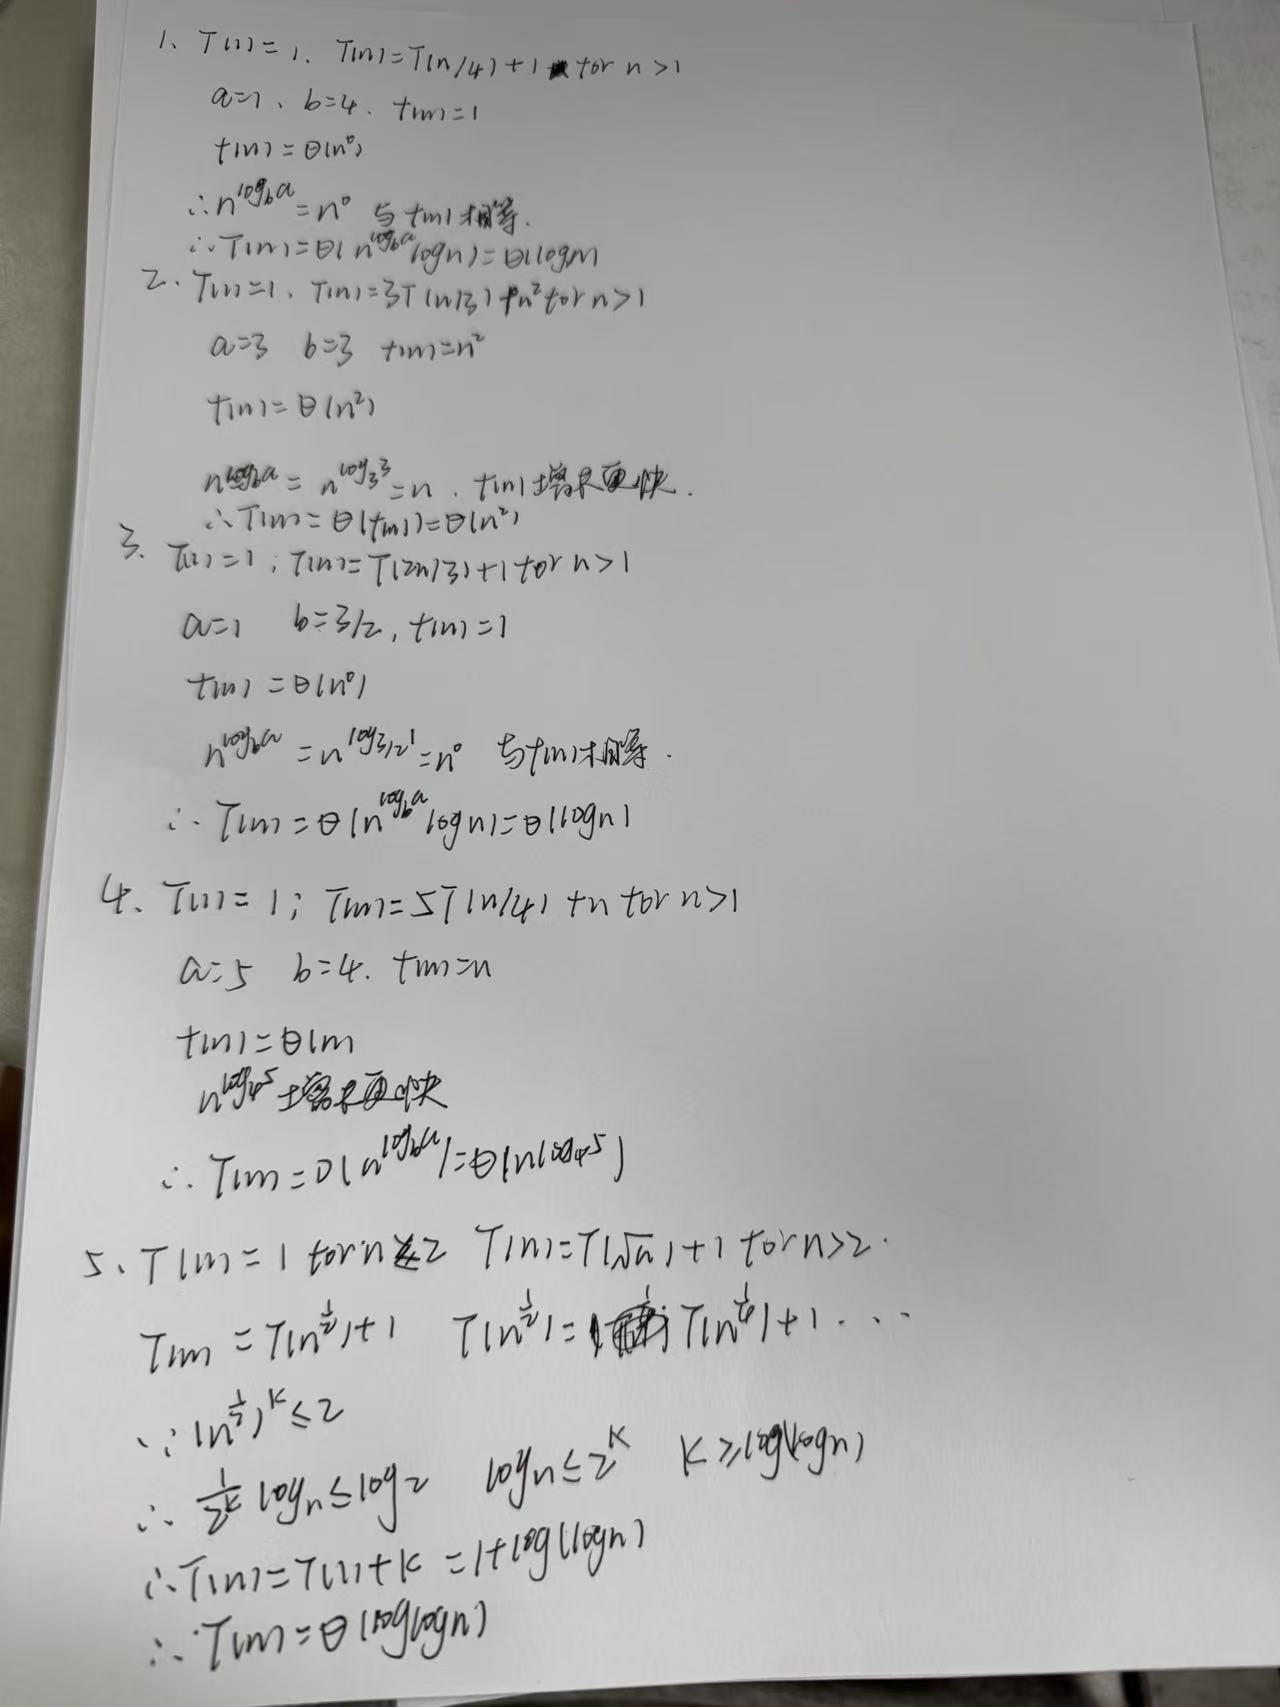 1、T(1)=1. T(n)=T(n/4)+1 for n>1
a=1、b=4. f(n)=1
f(n)=θ(n⁰)
∴n^{log_b a}=n⁰ 与f(n)相等.
∴T(n)=θ(n^{log_b a} log n)=θ(log n)
2. T(1)=1. T(n)=3T(n/3)+n² for n>1
a=3 b=3 f(n)=n²
f(n)=θ(n²)
n^{log_b a}=n^{log_3 3}=n. f(n)增长更快.
∴T(n)=θ(f(n))=θ(n²)
3. T(1)=1; T(n)=T(2n/3)+1 for n>1
a=1 b=3/2, f(n)=1
f(n)=θ(n⁰)
n^{log_b a}=n^{log_{3/2} 1}=n⁰ 与f(n)相等.
∴T(n)=θ(n^{log_b a} log n)=θ(log n)
4. T(1)=1; T(n)=5T(n/4)+n for n>1
a=5 b=4. f(n)=n
f(n)=θ(n)
n^{log_4 5}增长更快
∴T(n)=θ(n^{log_b a})=θ(n^{log_4 5})
5、T(n)=1 for n≤2 T(n)=T(√n)+1 for n>2.
T(n)=T(n^{1/2})+1 T(n^{1/2})=T(n^{1/4})+1...
∵(n^{1/2})^k≤2
∴1/2^k log n≤log 2 log n≤2^k k≥log(log n)
∴T(n)=T(1)+k=1+log(log n)
∴T(n)=θ(log log n)